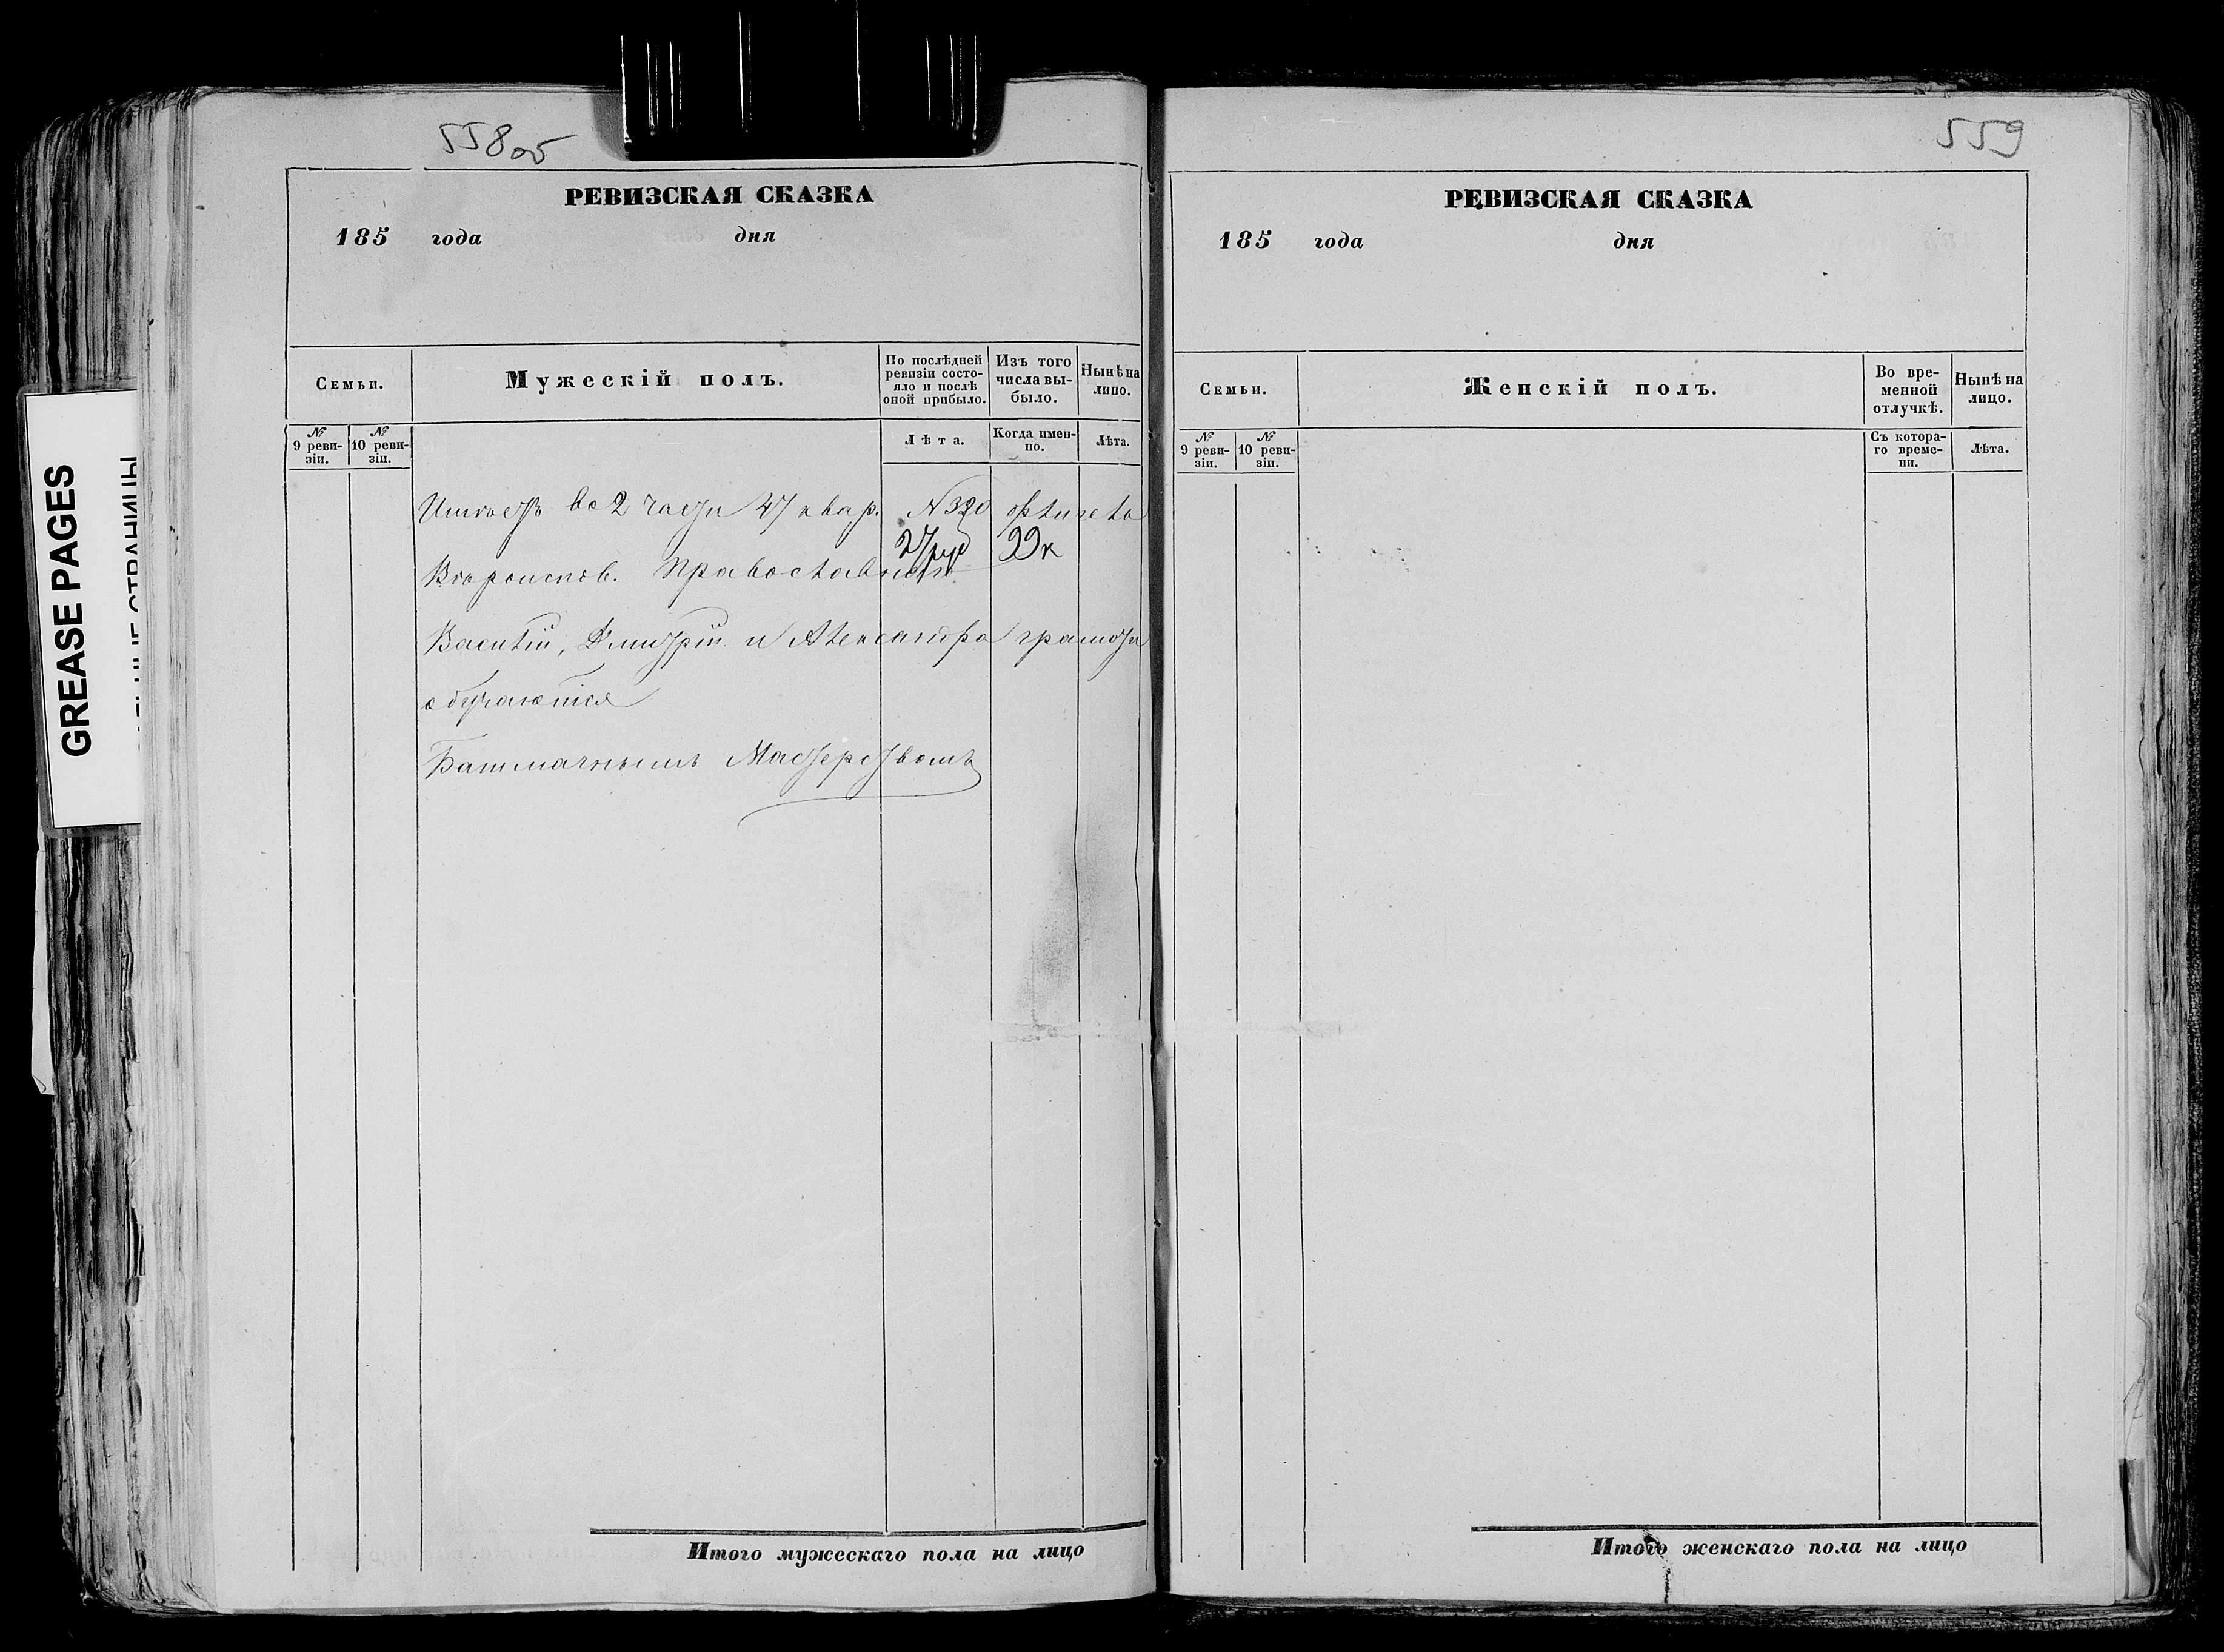 558 об
РЕВИЗСКАЯ СКАЗКА
185 года дня
Семьи.
Мужескій полъ.
По послѣдней ревизіи состо-
яло и послѣ
оной прибыло.
Изъ того
числа вы-
было.
Нынѣ на
лицо.
№
9 реви-
зіи.
№
10 реви-
зіи.
Лѣта.
Когда имен-
но.
Лѣта.
во 2 части 47 квар. № 320
27 руб 99 к
Вѣроиспов. Православнаго
Василій, Дмитрій и Александра грамоти
обучаются
Башмачнымъ Мастерствомъ
Итого мужескаго пола на лицо
559
РЕВИЗСКАЯ СКАЗКА
185 года дня
Семьи.
Женскій полъ.
Во вре-
менной
отлучкѣ.
Нынѣ на
лицо.
№
9 реви-
зіи.
№
10 реви-
зіи.
Съ котора-
го време-
ни.
Лѣта.
Итого женскаго пола на лицо
GREASE PAGES